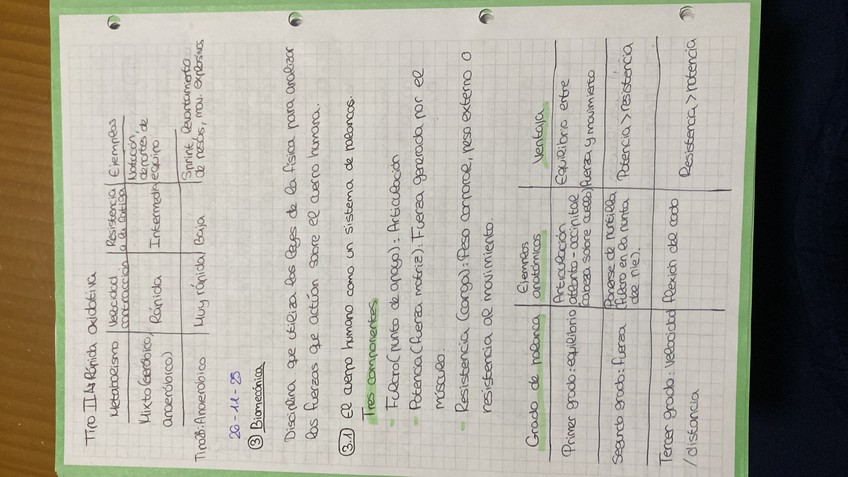 Tipo II ↳ Rápida oxidativa
Metabolismo | Velocidad contracción | Resistencia a la fatiga | Ejemplos
Mixto (aeróbico, anaeróbico) | Rápida | Intermedia | Natación, deportes de equipo
Tipo B: Anaeróbico | Muy rápida | Baja | Sprint, levantamiento de pesas, mov. explosivos
26-11-25
③ Biomecánica
Disciplina que utiliza las leyes de la física para analizar
las fuerzas que actúan sobre el cuerpo humano.
3.1 El cuerpo humano como un sistema de palancas.
Tres componentes
- Fulcro (punto de apoyo): Articulación
- Potencia (fuerza motriz): Fuerza generada por el
músculo.
- Resistencia (carga): Peso corporal, peso externo o
resistencia al movimiento.
Grado de palanca | Ejemplos anatómicos | Ventaja
Primer grado: equilibrio | Articulación atlanto-occipital (cabeza sobre cuello) | Equilibrio entre fuerza y movimiento
Segundo grado: fuerza | Ponerse de puntilla (fulcro en la punta del pie). | Potencia > resistencia
Tercer grado: velocidad / distancia | Flexión del codo | Resistencia > potencia